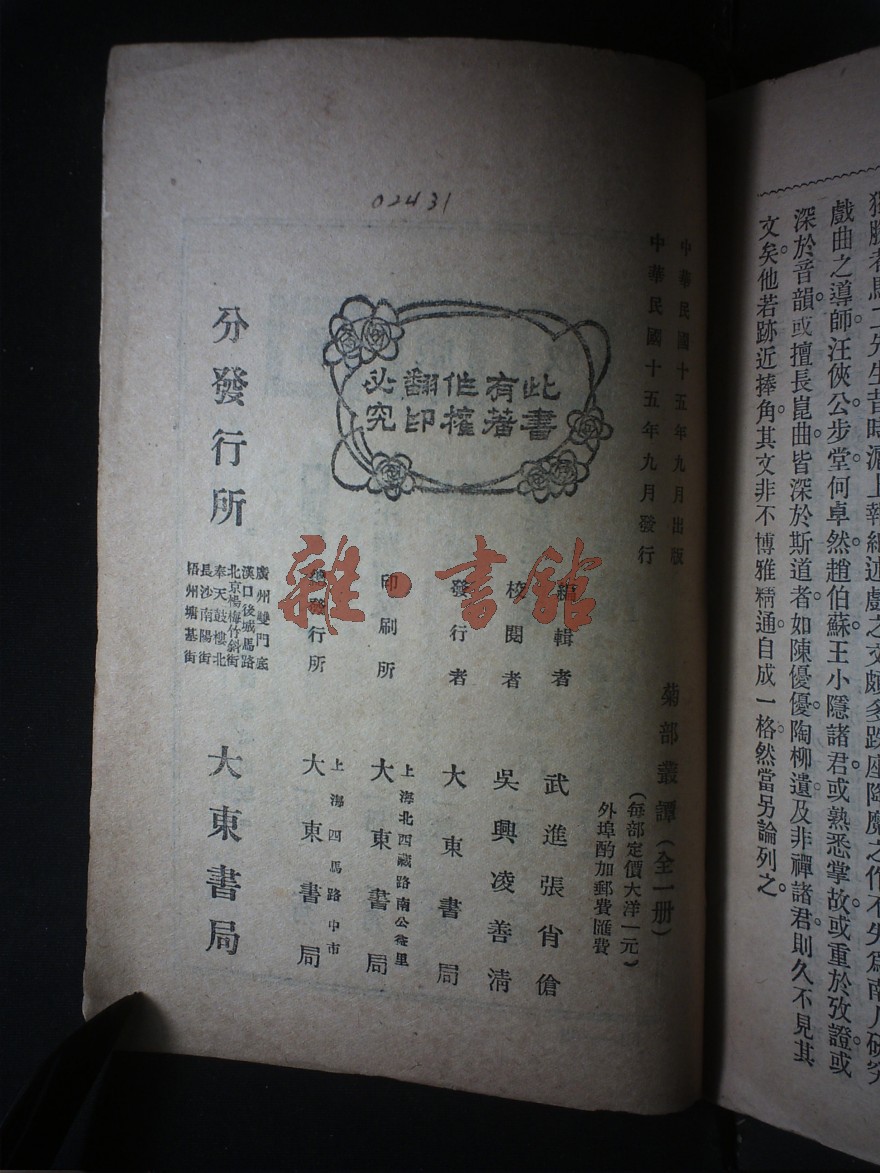 獨鶴者馬二先生昔時滬上報紙述戲之文頗多跌座陶魔之作不失爲南人研究
戲曲之導師汪俠公步堂何卓然趙伯蘇王小隱諸君或熟悉掌故或重於攷證或
深於音韻或擅長崑曲皆深於斯道者如陳優優陶柳遺及非禪諸君則久不見其
文矣他若跡近捧角其文非不博雅精通自成一格然當另論列之
02431
中華民國十五年九月出版
中華民國十五年九月發行
此書有著作權翻印必究
菊部叢譚(全一册)
(每部定價大洋一元)
外埠酌加郵費匯費
編輯者 武進張肖傖
校閱者 吳興凌善清
發行者 大東書局
印刷所 上海北西藏路南公益里 大東書局
總發行所 上海四馬路中市 大東書局
分發行所
廣州雙門底
漢口後城馬路
北京楊梅竹斜街
奉天鼓樓北
長沙南陽街
梧州塘基街
大東書局
雜·書館